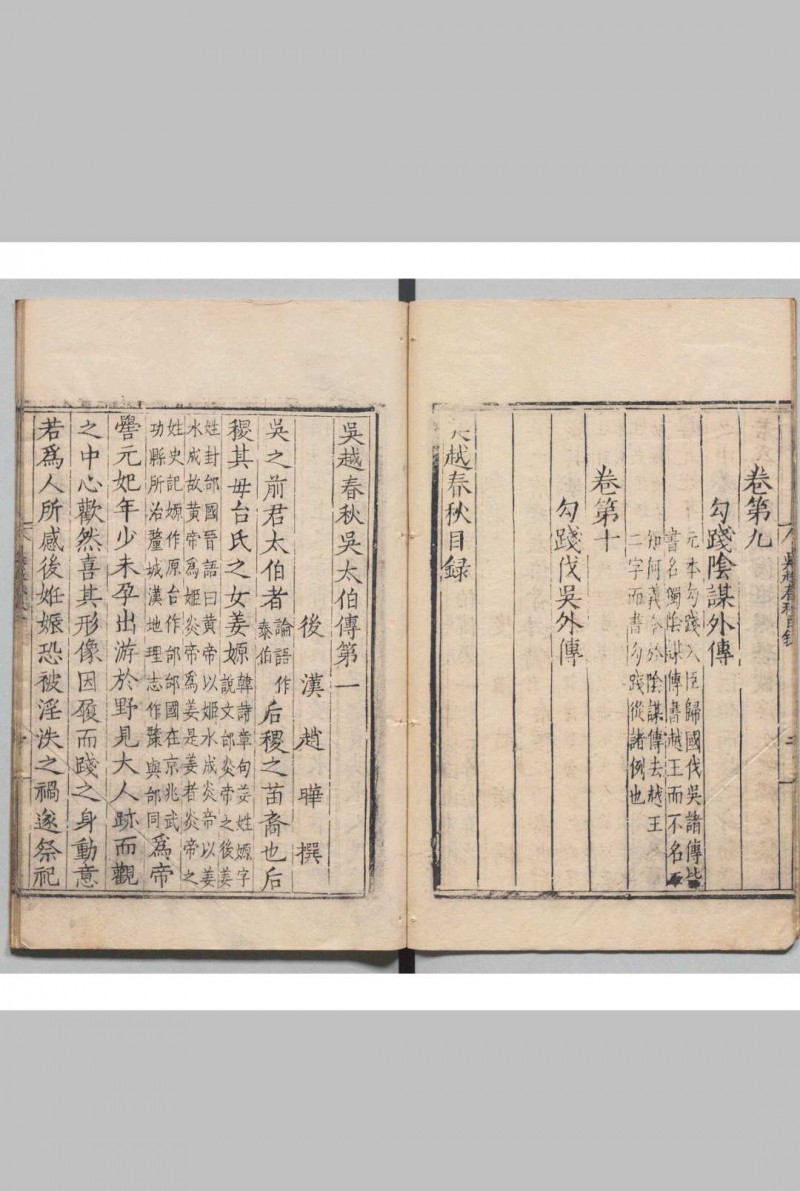 卷第九
勾踐陰謀外傳
元本勾踐入臣歸國伐吳諸傳皆
書名獨陰謀傳書越王而不名不
知何義今於陰謀傳去越王
二字而書勾踐從諸例也
卷第十
勾踐伐吳外傳
越春秋目録
吳越春秋目録
二
吳越春秋吳太伯傳第一
後漢趙曄撰
吳之前君太伯者
論語作
泰伯
后稷之苗裔也后
稷其毋台氏之女姜嫄
韓詩章句姜姓嫄字
說文邰炎帝之後姜
姓封邰國晉語曰黃帝以姬水成炎帝以姜
水成故黃帝爲姬炎帝爲姜是姜者炎帝之
姓史記嫄作原台作邰邰國在京兆武
功縣所治釐城漢地理志作斄與邰同
爲帝
嚳元妃年少未孕出游於野見大人跡而觀
之中心歡然喜其形像因履而踐之身動意
若爲人所感後姙娠恐被淫泆之禍遂祭祀